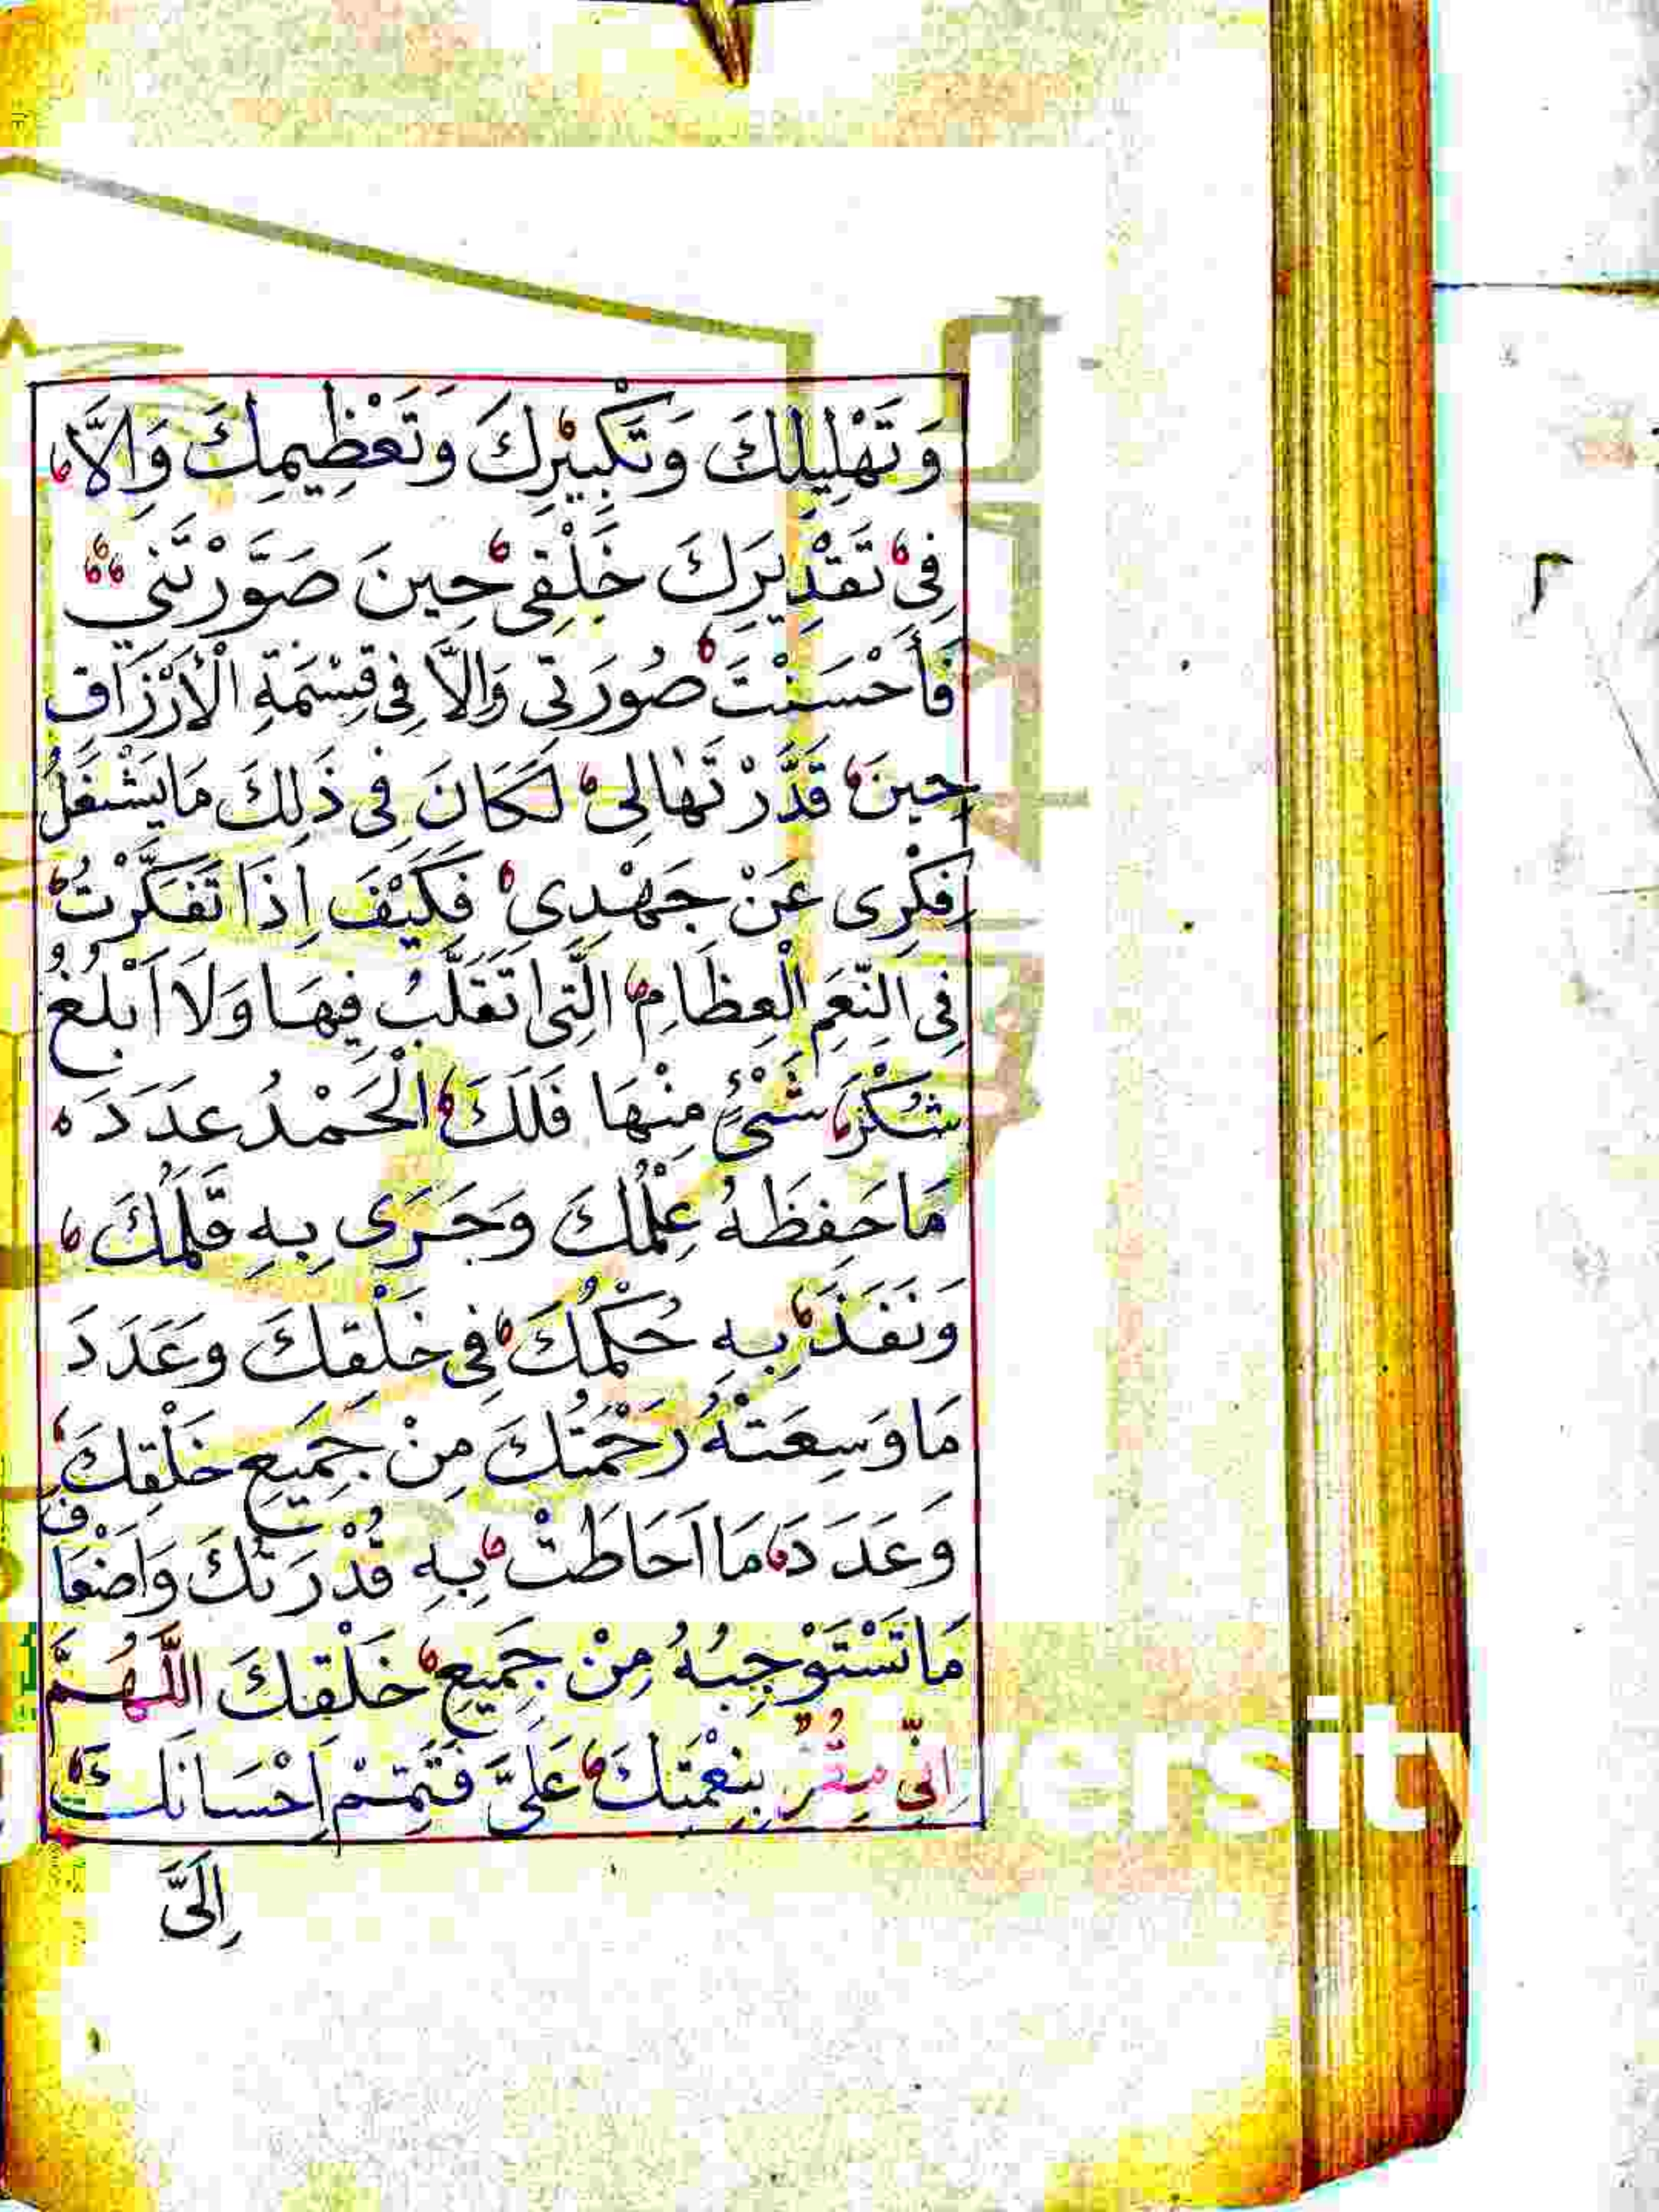 وَتَهْلِيلِكَ وَتَكْبِيْرِكَ وَتَعْظِيمِكَ وَاِلَّا
فِى تَقْدِيرِكَ خَلْقِى حِينَ صَوَّرْتَنِى
فَأَحْسَنْتَ صُورَتِى وَاِلَّا فِى قِسْمَةِ الْأَرْزَاقِ
حِينَ قَدَّرْتَهَا لِى لَكَانَ فِى ذَلِكَ مَا يَشْغَلُ
فِكْرِى عَنْ جَهْدِى فَكَيْفَ اِذَا تَفَكَّرْتُ
فِى النِّعَمِ الْعِظَامِ الَّتِى اَتَقَلَّبُ فِيهَا وَلَا اَبْلُغُ
شُكْرَ شَىْءٍ مِنْهَا فَلَكَ الْحَمْدُ عَدَدَ
مَا حَفِظَهُ عِلْمُكَ وَجَرَى بِهِ قَلَمُكَ
وَنَفَذَ بِهِ حُكْمُكَ فِى خَلْقِكَ وَعَدَدَ
مَا وَسِعَتْهُ رَحْمَتُكَ مِنْ جَمِيعِ خَلْقِكَ
وَعَدَدَ مَا اَحَاطَتْ بِهِ قُدْرَتُكَ وَاَضْعَافَ
مَا تَسْتَوْجِبُهُ مِنْ جَمِيعِ خَلْقِكَ اللَّهُمَّ
اِنِّى مُقِرٌّ بِنِعْمَتِكَ عَلَىَّ فَتَمِّمْ اِحْسَانَكَ
اِلَىَّ
٢
ersity